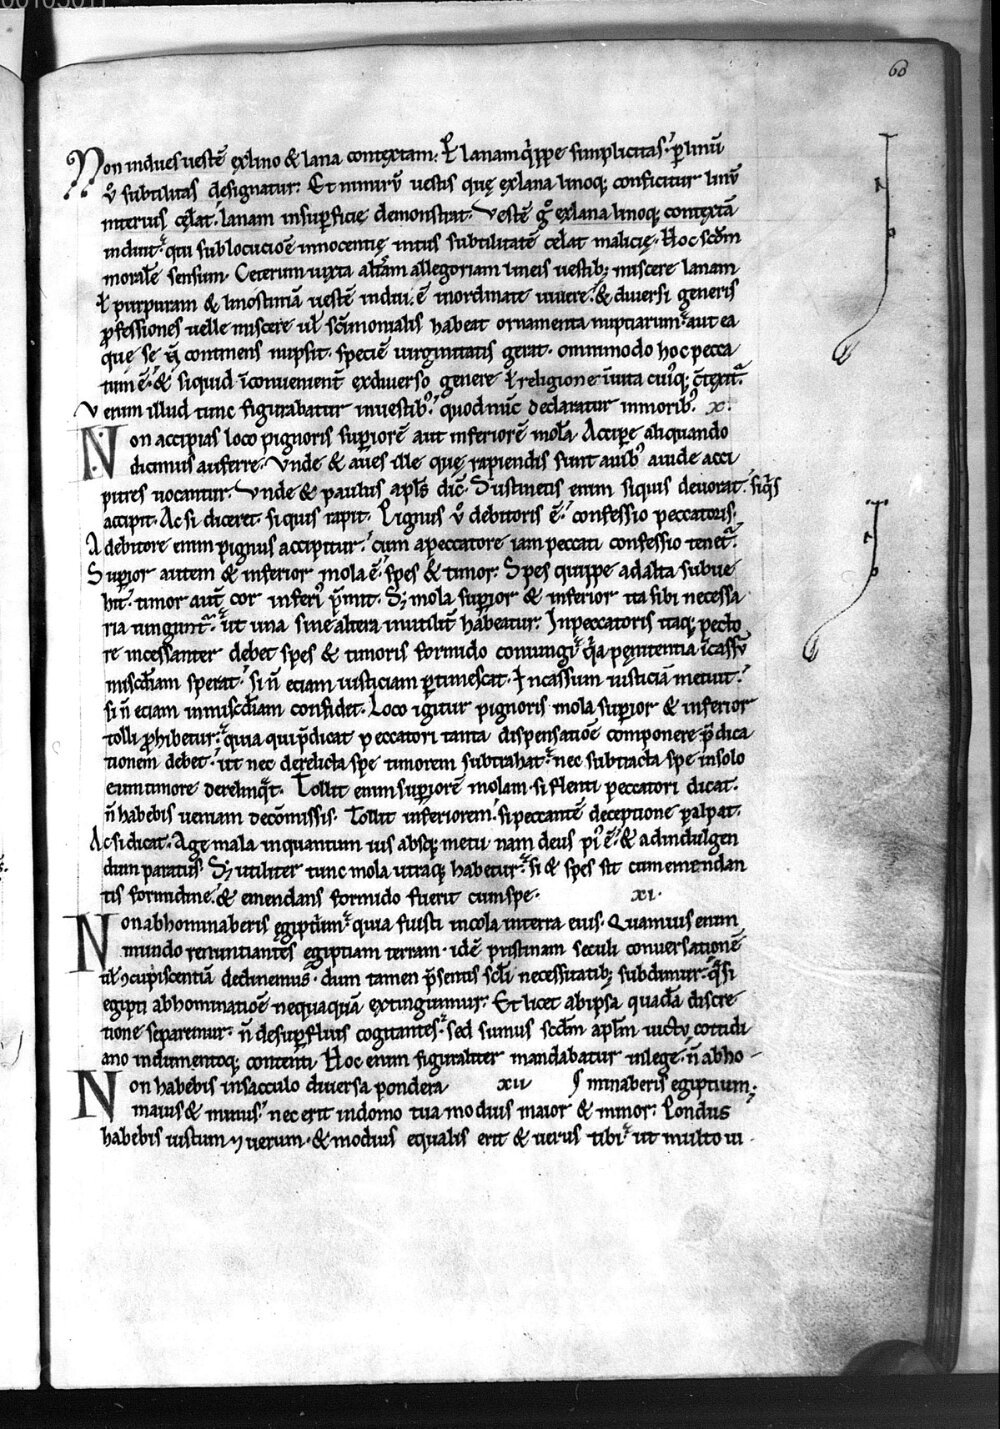 60
Non indues uestē ex lino & lana contextam. P̄ lanam q̄ppe simplicitas. p̄ linū
ů subtilitas designatur. Et nimirū uestis quę ex lana linoq; conficitur linū
interius cęlat. lanam in supficie demonstrat. Vestē gͦ ex lana linoq; contextā
induit. qui sub locucioē innocentię intus subtilitatē cęlat malicię. Hoc scdm
moralē sensum. Ceterum iuxta aliā allegoriam lineis uestib; miscere lanam
ł purpuram & linostimā uestē indui. ē inordinate uiuere. & diuersi generis
pfessiones uelle miscere uł sc̄imonialis habeat ornamenta nuptiarum. aut ea
quę se ñ continens nupsit. speciē uirginitatis gerat. omnimodo hoc pecca
tum ē. & siquid īconuenient̄ ex diuerso genere ł religione ī uita cuiq; c̄texit.
Verum illud tunc figurabatur in uestib; quod nūc declaratur in morib; x.
Non accipias loco pignoris supiorē aut inferiorē molā. Accipe aliquando
dicimus auferre. Vnde & aues ille quę rapiendis sunt auib; auide acci
pitres uocantur. Vnde & paulus apłs dic̄. Sustinetis enim siquis deuorat. siq̄s
accipit. Ac si diceret. siquis rapit. Pignus ů debitoris ē. confessio peccatoris.
A debitore enim pignus accipitur. cum a peccatore iam peccati confessio tenet.
Supior autem & inferior mola ē. spes & timor. Spes quippe ad alta subue
hit. timor aut̄ cor inferi p̄mit. S; mola supior & inferior ita sibi necessa
ria iungunt. ut una sine altera inutilit̄ habeatur. In peccatoris itaq; pecto
re incessanter debet spes & timoris formido coniungi. q̄a penitentia īcassū
misc̄diam sperat. si ñ eciam iusticiam ptimescat. Incassum iusticiā metuit.
si ñ eciam in misc̄diam confidit. Loco igitur pignoris mola supior & inferior
tolli phibetur. quia qui p̄dicat peccatori tanta dispensatioē componere p̄dica
tionem debet. ut nec derelicta spe timorem subtrahat. nec subtracta spe in solo
eum timore derelinq̄t. Tollit enim supiorē molam. si flenti peccatori dicat.
ñ habebis ueniam de cōmissis. Tollit inferiorem. si peccantē deceptione palpat.
Ac si dicat. Age mala inquantum uis absq; metu nam deus pi ē. & ad indulgen
dum paratus. S; utiliter tunc mola utraq; habetur. si & spes sit cum emendan
tis formidine. & emendans formido fuerit cum spe. xi.
Non abhominaberis egiptium. quia fuisti incola in terra eius. Quamuis enim
mundo renuntiantes egiptiam terram. idē pristinam seculi conuersationē
uł ɔcupiscentiā declinemus. dum tamen p̄sentis scłi necessitatib; subdimur. q̄si
egipti abhominatioē nequaquā extinguimur. Et licet ab ipsa quadā discre
tione separemur. ñ de supfluis cogitantes. sed sumus scdm apłm uictu cottidi
ano indumentoq; contenti. Hoc enim figuraliter mandabatur in lege. ñ abho
Non habebis in sacculo diuersa pondera xii minaberis egiptium.
maius & minus. nec erit in domo tua modius maior & minor. Pondus
habebis iustum ⁊ uerum. & modius equalis erit & uerus tibi. ut multo ui